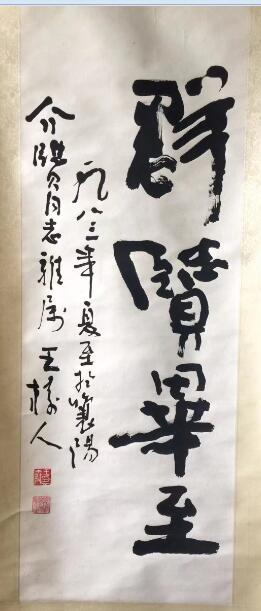 群賢畢至
一九八三年夏至於襄陽
介賢同志雅属 王樹人